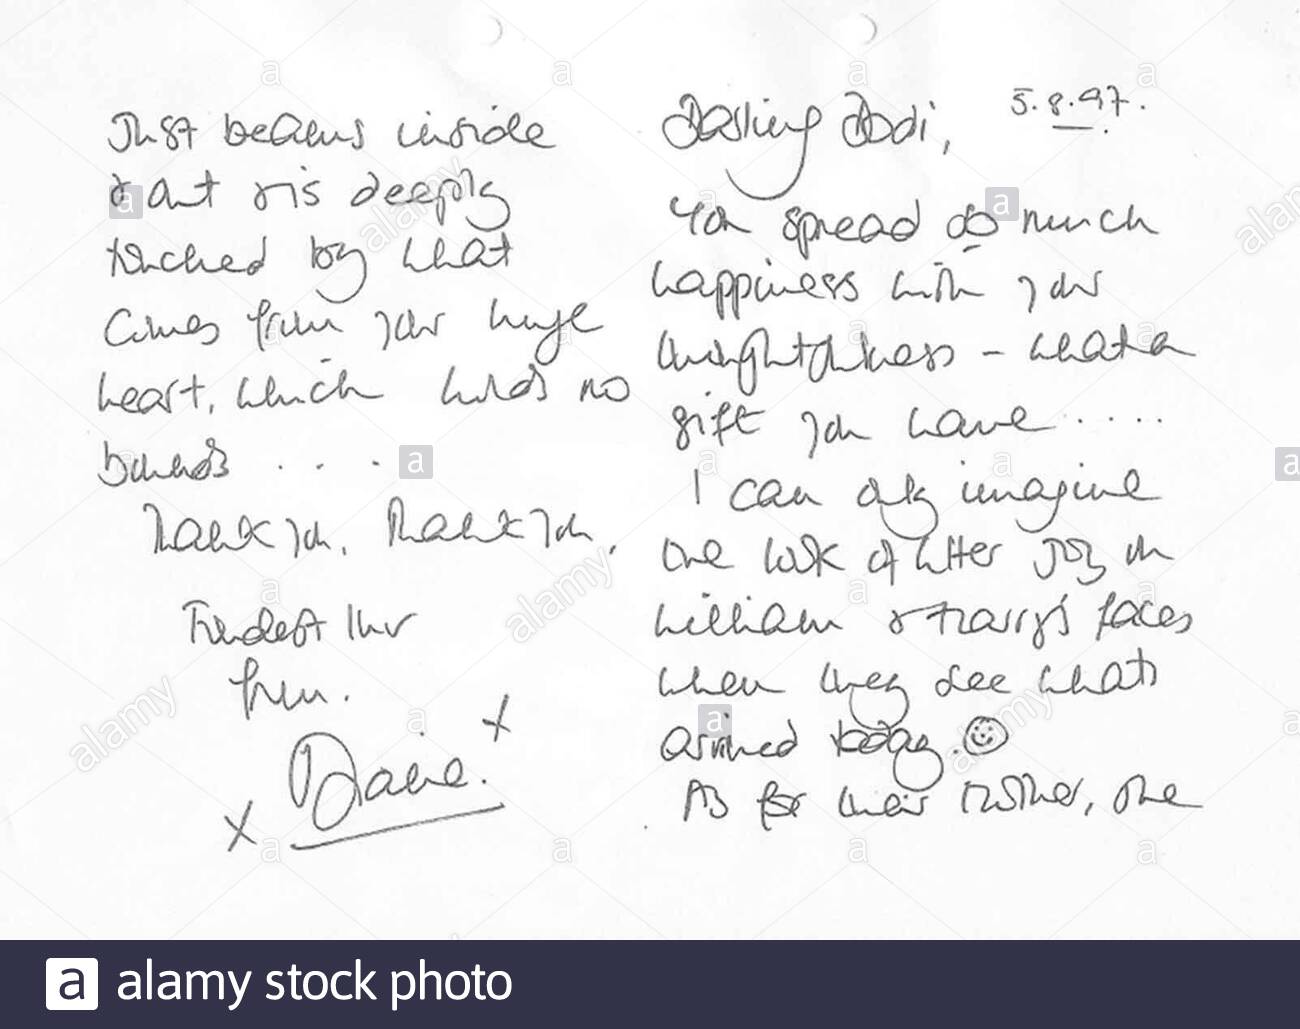 Darling Dodi, 5.8.97.
You spread so much
happiness with your
thoughtfulness - what a
gift you have .....
I can only imagine
the look of utter joy on
William & Harry's faces
when they see what's
arrived today. ☺
As for their mother, she
Just beams inside
& out & is deeply
touched by what
comes from your huge
heart, which holds no
bounds ...
Thank you, thank you,
Fondest love
from.
x Diana. x
a alamy stock photo